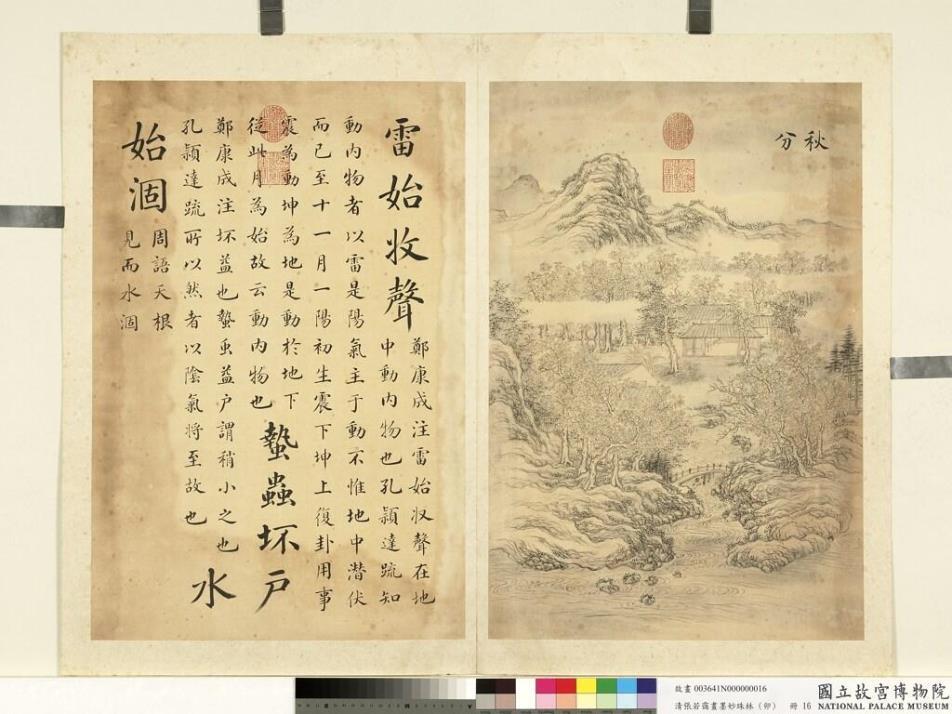 秋分
雷始收聲
鄭康成注雷始収聲在地
中動內物也孔穎達疏知
動內物者以雷是陽氣主于動不惟地中潜伏
而已至十一月一陽初生震下坤上復卦用事
震為動坤為地是動於地下
從此月為始故云動內物也
蟄蟲坏戶
鄭康成注坏益也蟄虫益戶謂稍小之也
孔穎達疏所以然者以陰氣將至故也
水
始涸
周語天根
見而水涸
故畫 003641N000000016
清張若靄畫墨妙珠林（卯） 冊 16
國立故宮博物院
NATIONAL PALACE MUSEUM